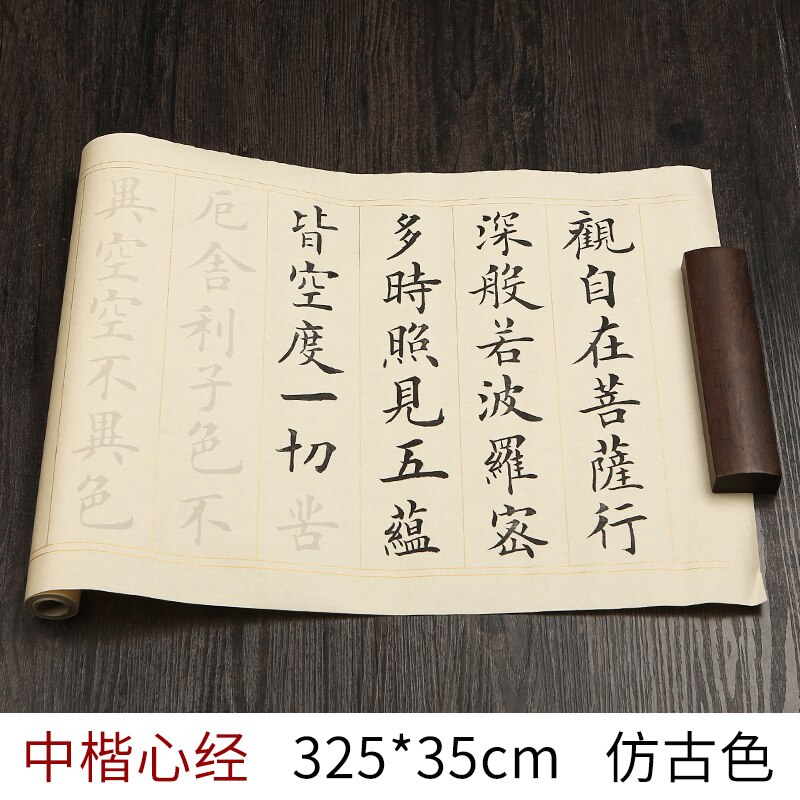 觀自在菩薩行
深般若波羅密
多時照見五蘊
皆空度一切苦
厄舍利子色不
異空空不異色
中楷心经 325*35cm 仿古色